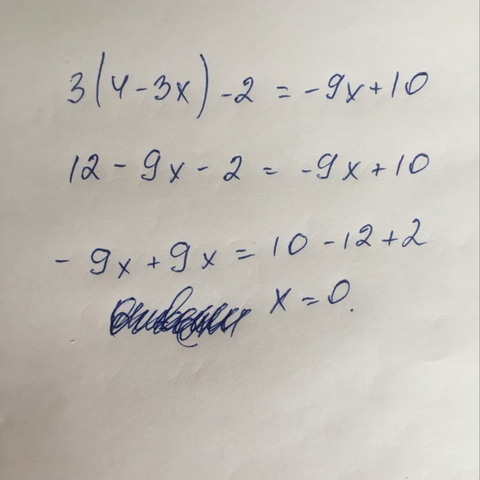 3(4-3x)-2 = -9x+10
12 - 9x - 2 = -9x + 10
- 9x + 9x = 10 - 12 + 2
x = 0.